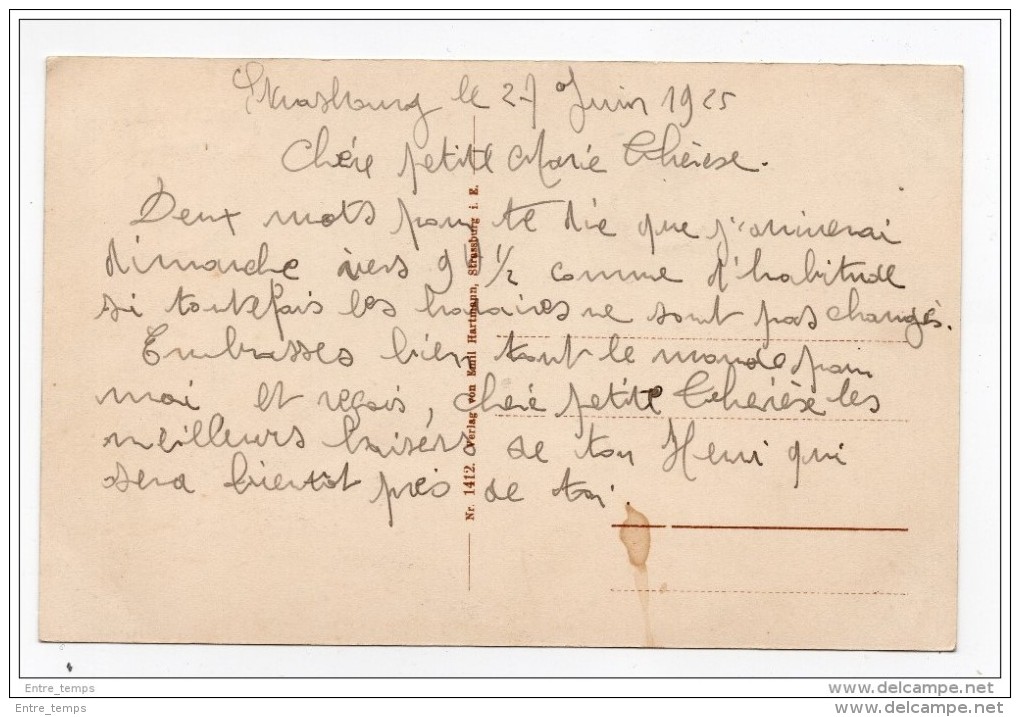 Strasbourg le 27 Juin 1925
Chère petite Marie Thérèse.
Deux mots pour te dire que j'arriverai
dimanche vers 9h 1/2 comme d'habitude
si toutefois les horaires ne sont pas changés.
Embrasses bien tout le monde pour
moi et reçois, chère petite Thérèse les
meilleurs baisers de ton Henri qui
sera bientôt près de toi.
Nr. 1412. Verlag von Emil Hartmann, Strassburg i. E.
Entre_temps
www.delcampe.net
Entre_temps
www.delcampe.net